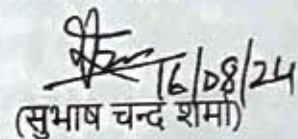 16/08/24
(सुभाष चन्द शर्मा)